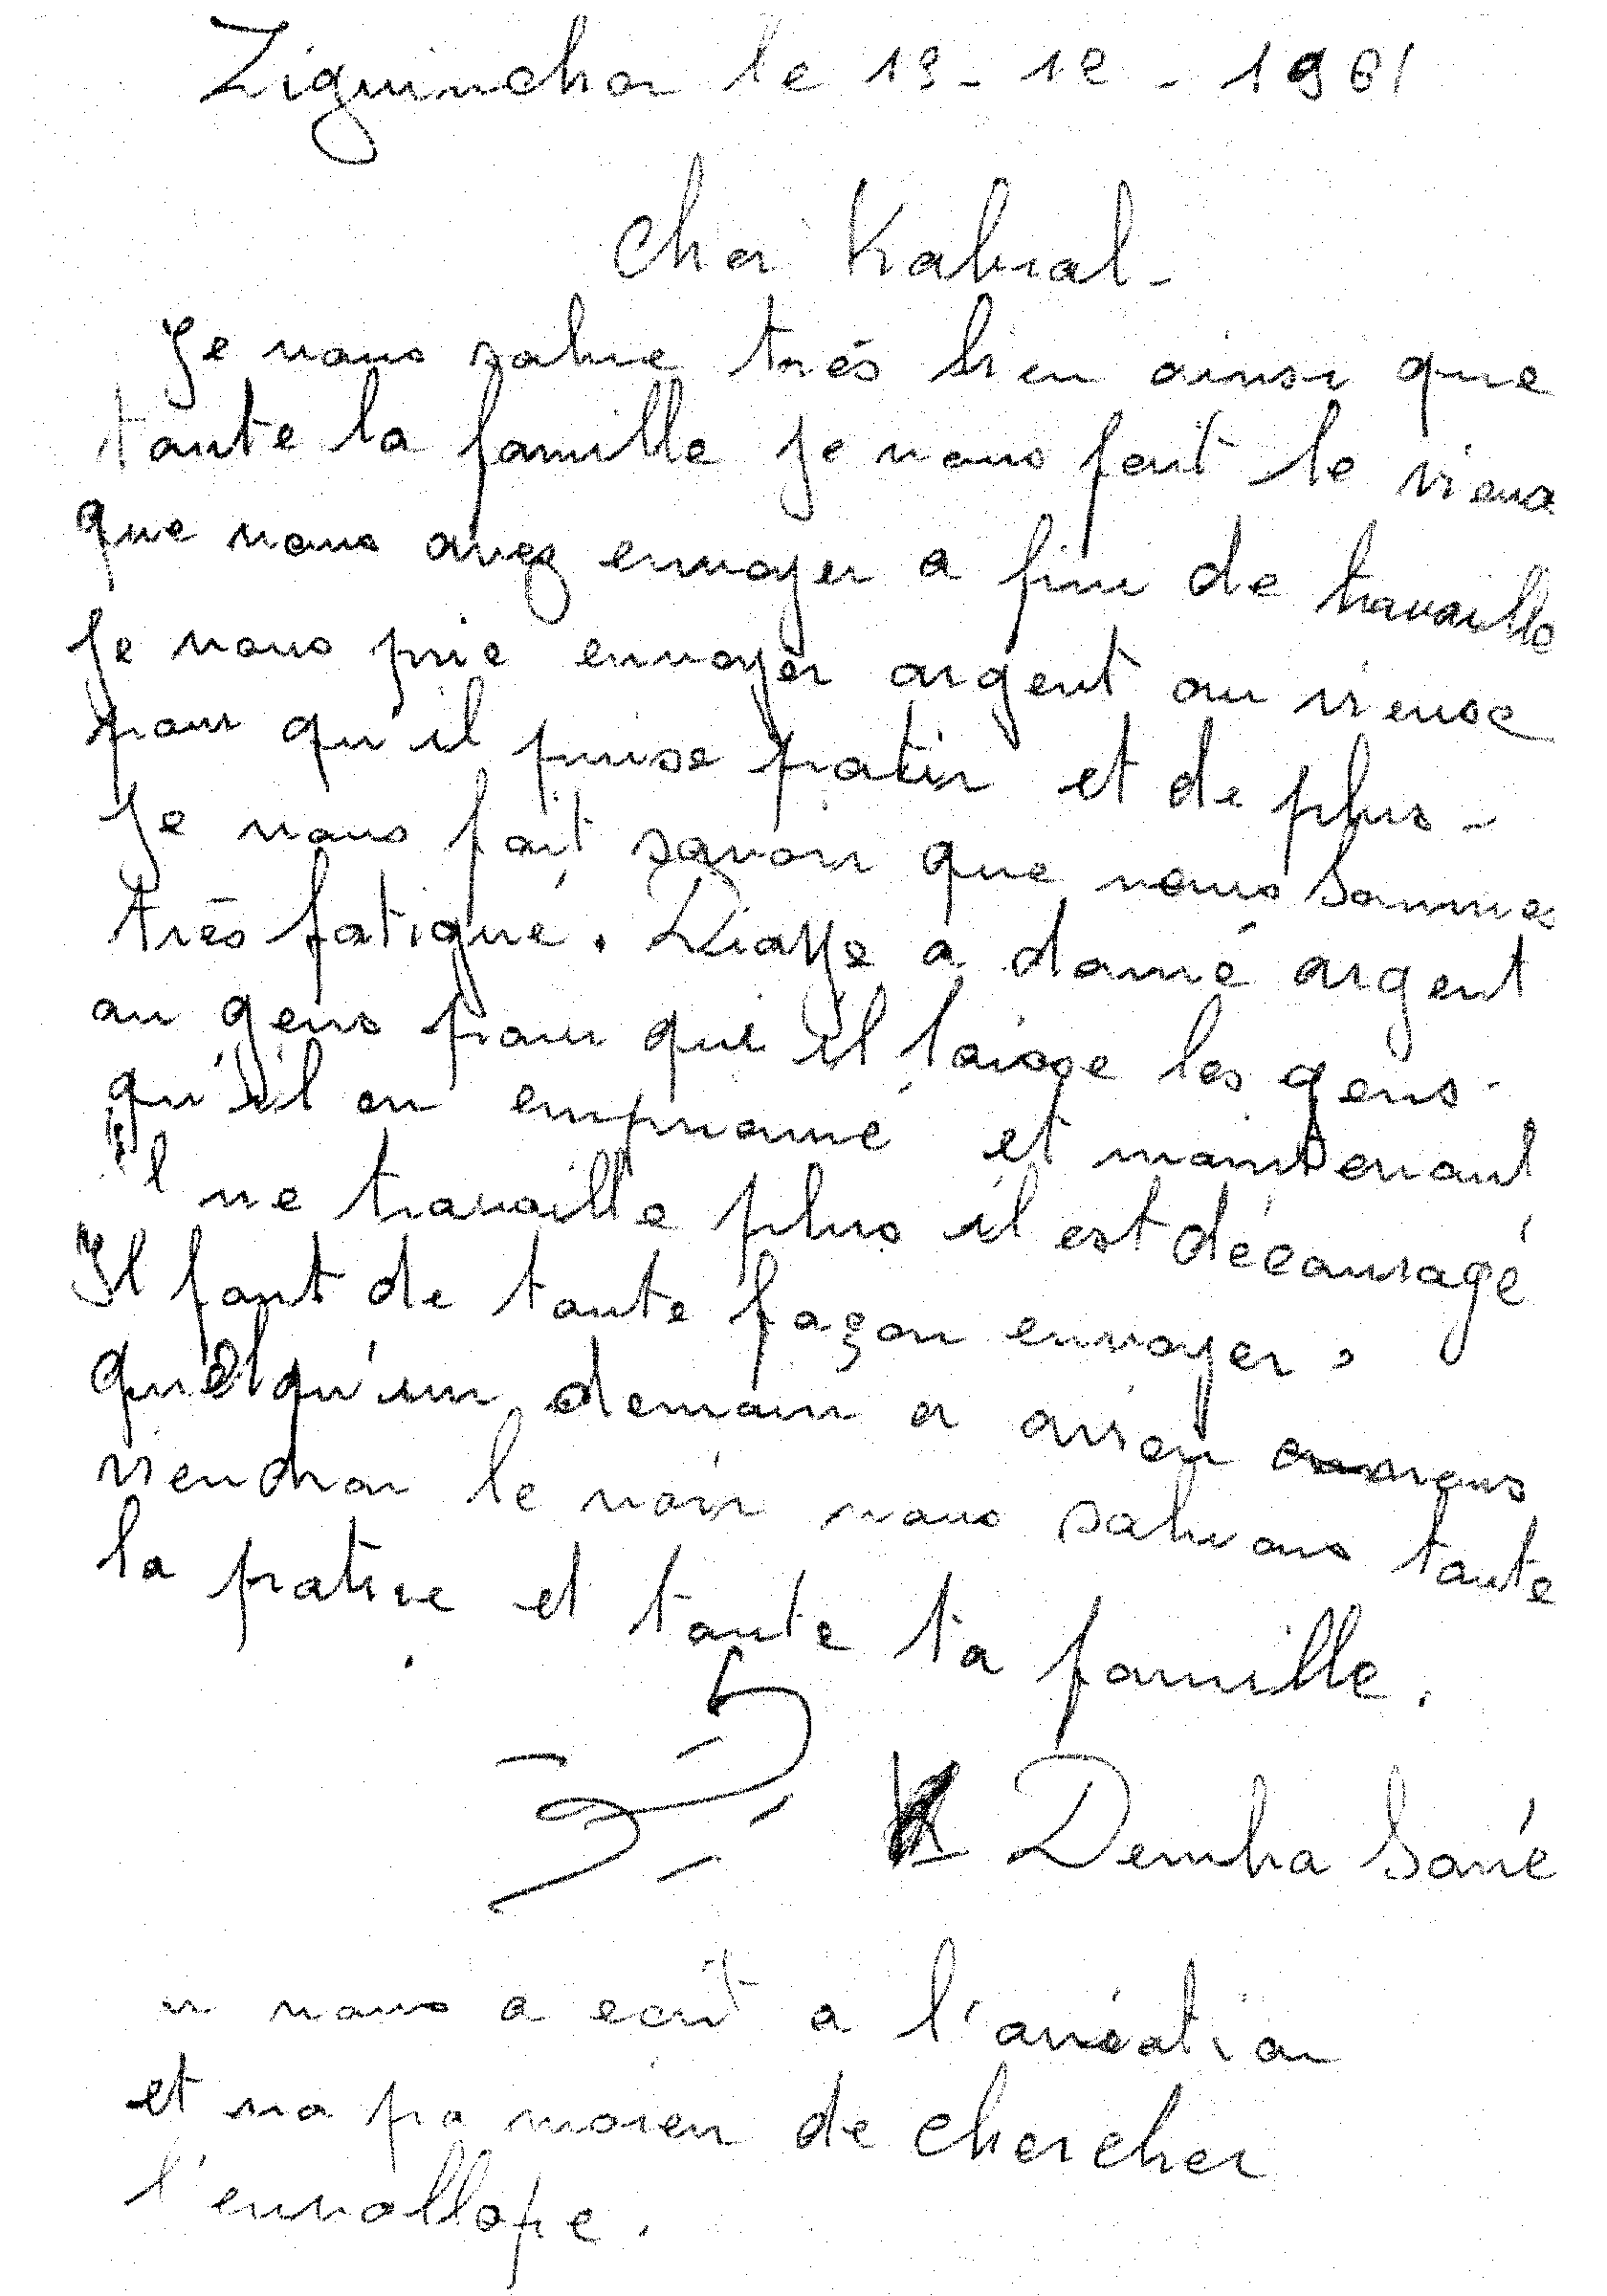 Ziguinchor le 19-12-1961
Cher Kabral-
Je vous salue très bien ainsi que
toute la famille je vous fait le vieux
que vous avez envoyer a fini de travaille
Je vous prie envoyer argent au vieuse
pour qu'il puise patir et de plus-
Je vous fait savoir que nous sommes
très fatigué. Diallo a donné argent
au gens pour que il laisse les gens
qu'il on emprionné et maintenant
il ne travaille plus il est découragé
Il faut de toute façon envoyer,
quelqu'un demain a avion
viendrai le voir nous saluons toute
la patrie et toute ta famille.
Demba Sané
vous a ecrit a l'aviation
et na pa moien de chercher
l'envollope.